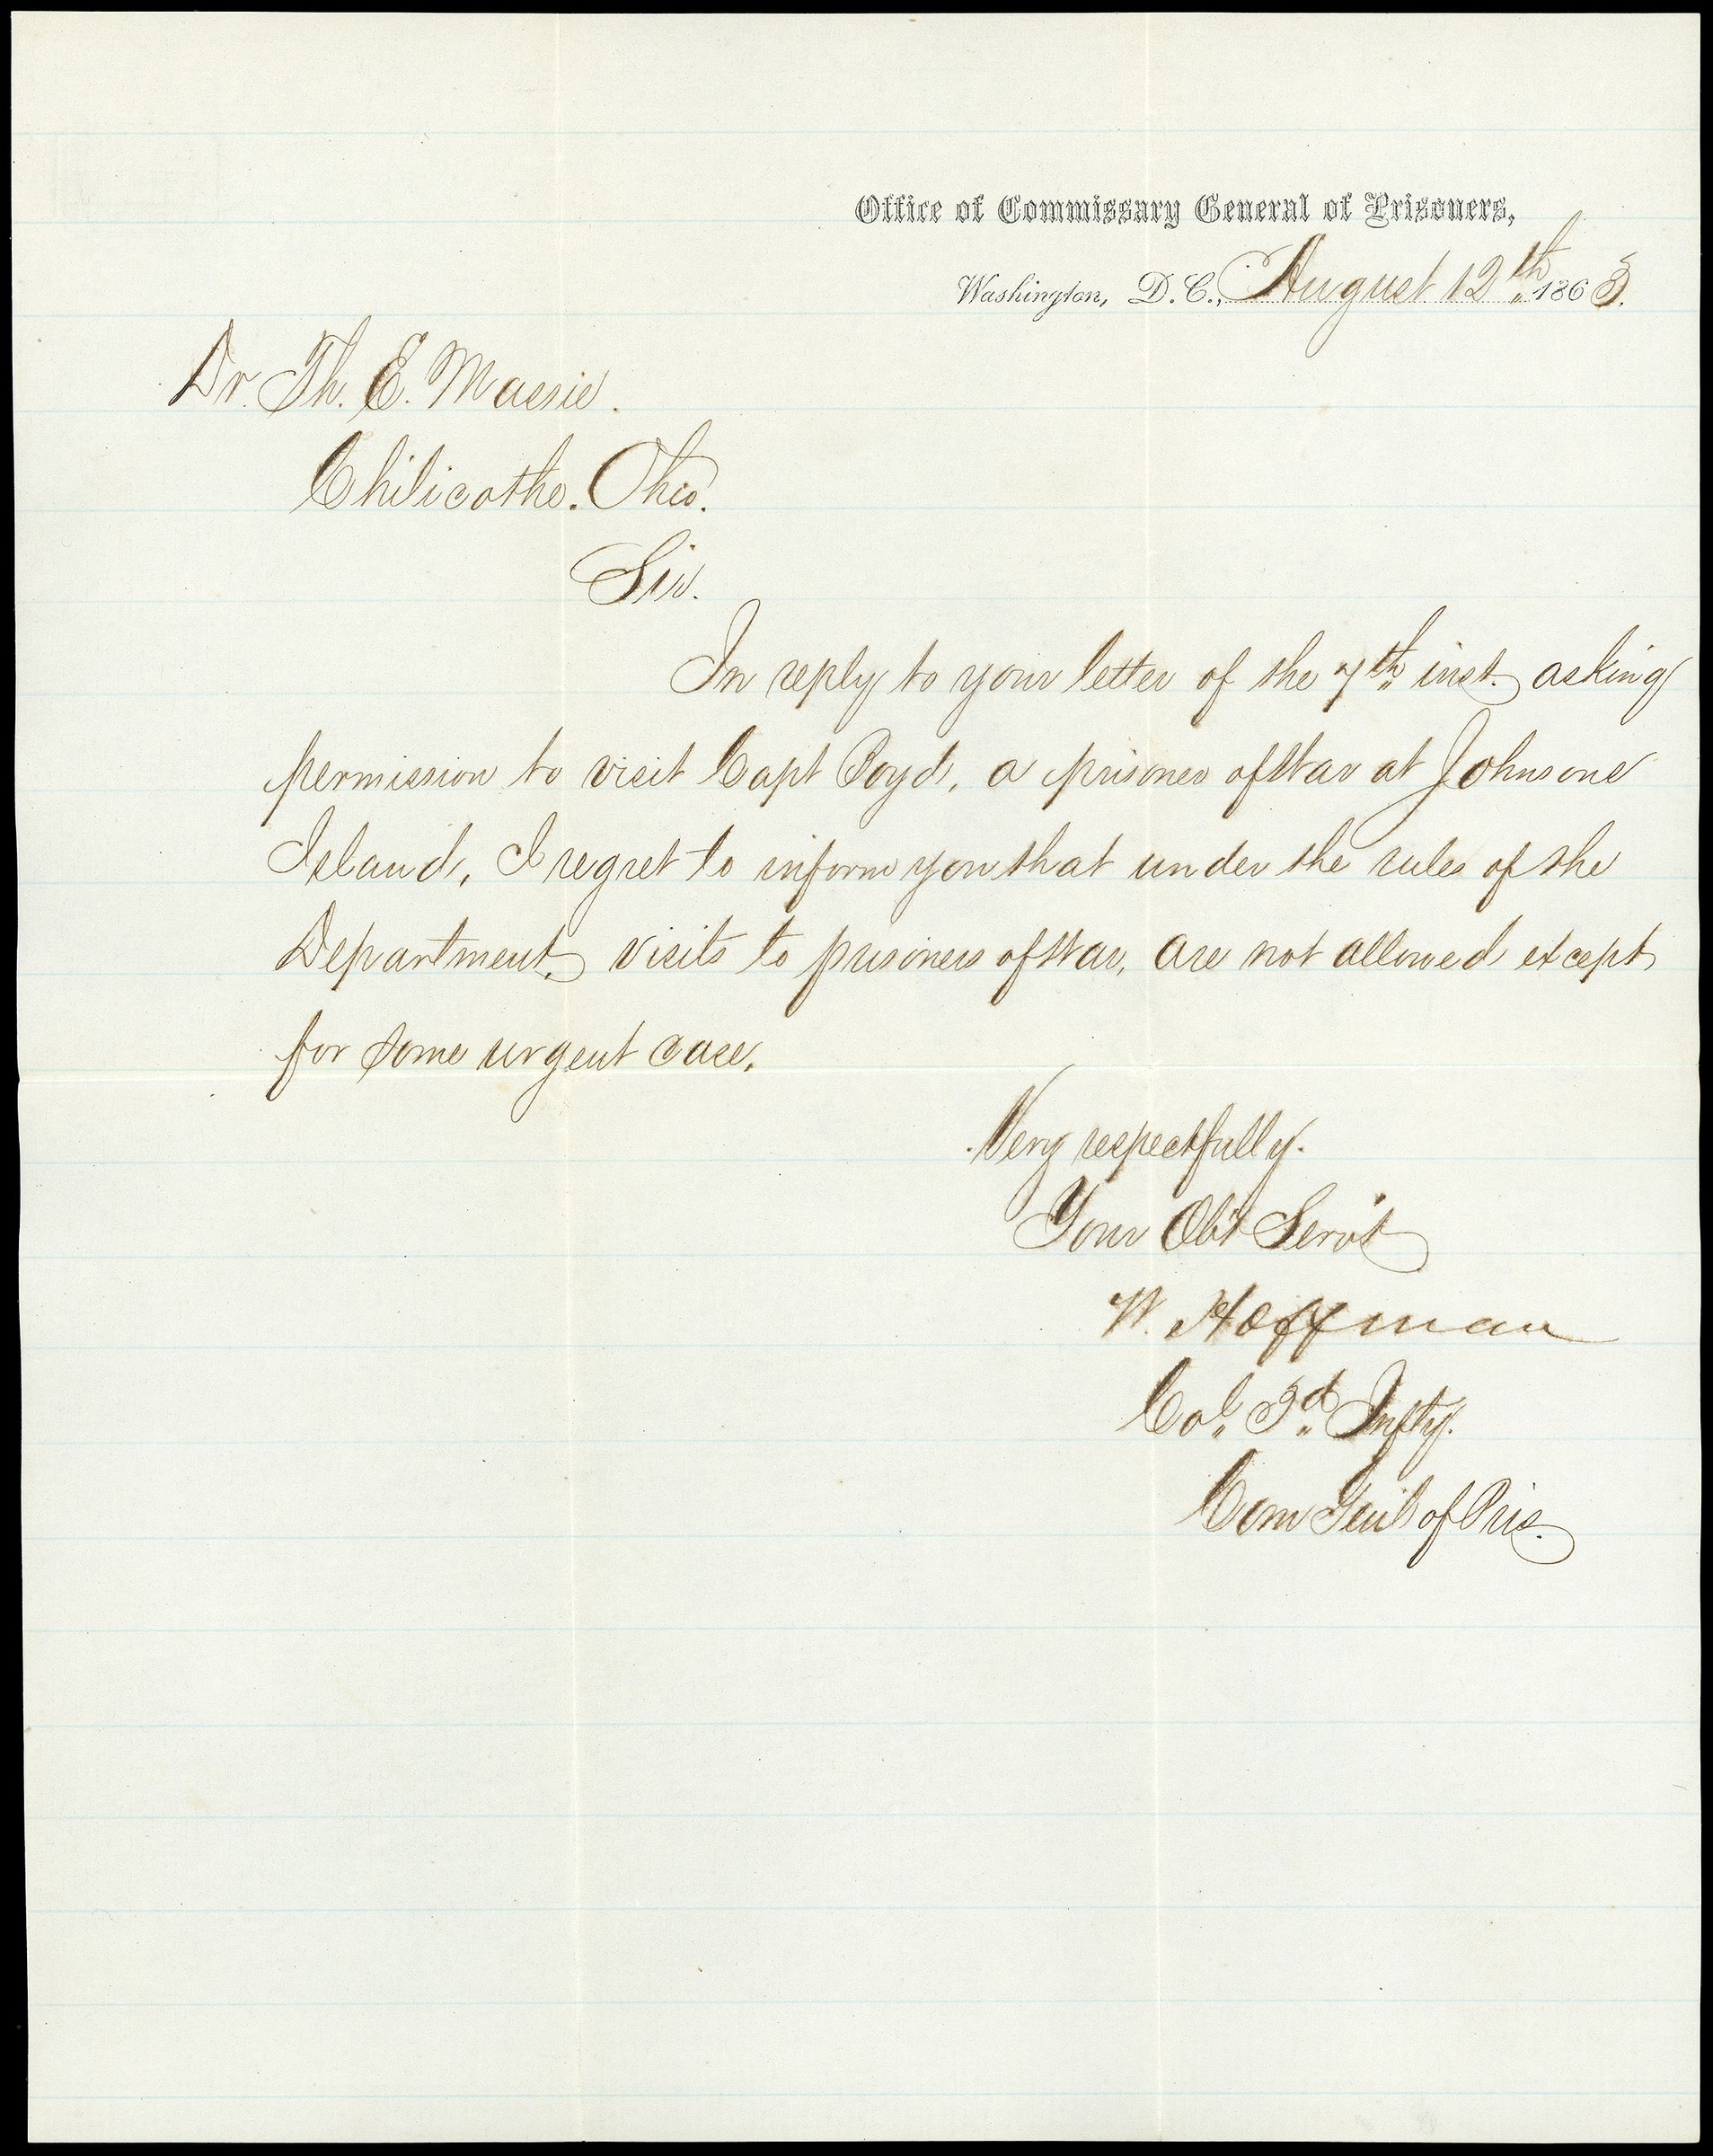 Office of Commissary General of Prisoners,
Washington, D.C., August 12th 1863.
Dr. Th. E. Massie.
Chilicothe. Ohio.
Sir.
In reply to your letter of the 7th inst. asking
permission to visit Capt Boyd, a prisoner of War at Johnsons
Island, I regret to inform you that under the rules of the
Department, visits to prisoners of War, are not allowed except
for some urgent case.
Very respectfully.
Your Obt Serv't
W. Hoffman
Col. 3d Infty.
Com Genl of Pris.